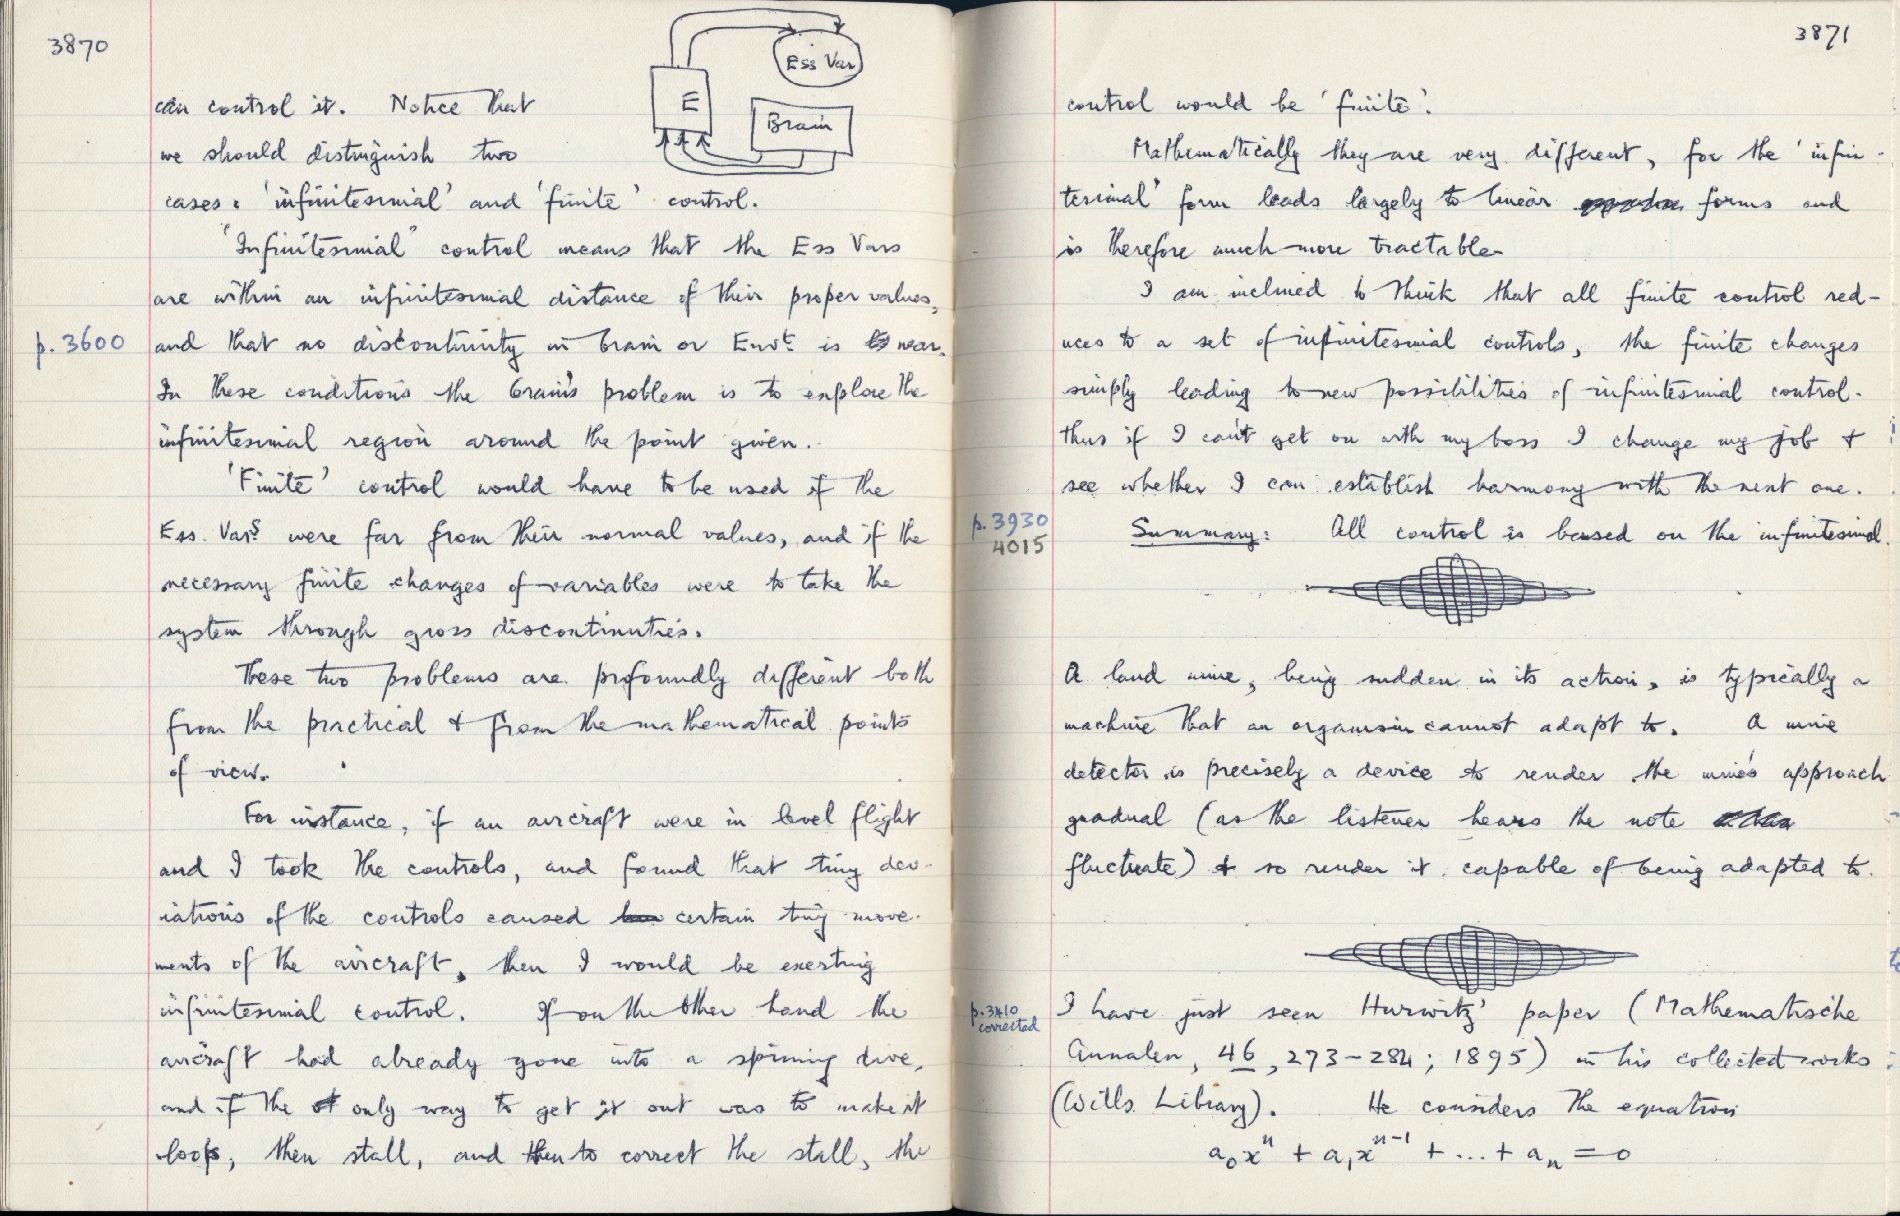 3870
Ess Var
E
Brain
can control it. Notice that
we should distinguish two
cases: 'infinitesimal' and 'finite' control.
'Infinitesimal' control means that the Ess Vars
are within an infinitesimal distance of their proper values,
p. 3600
and that no discontinuity in brain or Envt. is near.
In these conditions the brain's problem is to explore the
infinitesimal region around the point given.
'Finite' control would have to be used if the
Ess. Vars. were far from their normal values, and if the
necessary finite changes of variables were to take the
system through gross discontinuties.
These two problems are profoundly different both
from the practical & from the mathematical points
of view.
For instance, if an aircraft were in level flight
and I took the controls, and found that tiny dev-
iations of the controls caused certain tiny move-
ments of the aircraft, then I would be exerting
infinitesimal control. If on the other hand the
aircraft had already gone into a spinning dive,
and if the only way to get it out was to make it
loop, then stall, and then to correct the stall, the
3871
control would be 'finite'.
Mathematically they are very different, for the 'infin-
tesimal' form leads largely to linear forms and
is therefore much more tractable.
I am inclined to think that all finite control red-
uces to a set of infinitesimal controls, the finite changes
simply leading to new possibilities of infinitesimal control.
Thus if I can't get on with my boss I change my job &
see whether I can establish harmony with the next one.
p. 3930
4015
Summary: All control is based on the infinitesimal.
A land mine, being sudden in its action, is typically a
machine that an organism cannot adapt to. A mine
detector is precisely a device to render the mine's approach
gradual (as the listener hears the note
fluctuate) & so render it capable of being adapted to.
p. 3410
corrected
I have just seen Hurwitz' paper (Mathematische
Annalen, 46, 273-284; 1895) in his collected works
(Wills Library). He considers the equation
a₀xⁿ + a₁xⁿ⁻¹ + ... + aₙ = 0